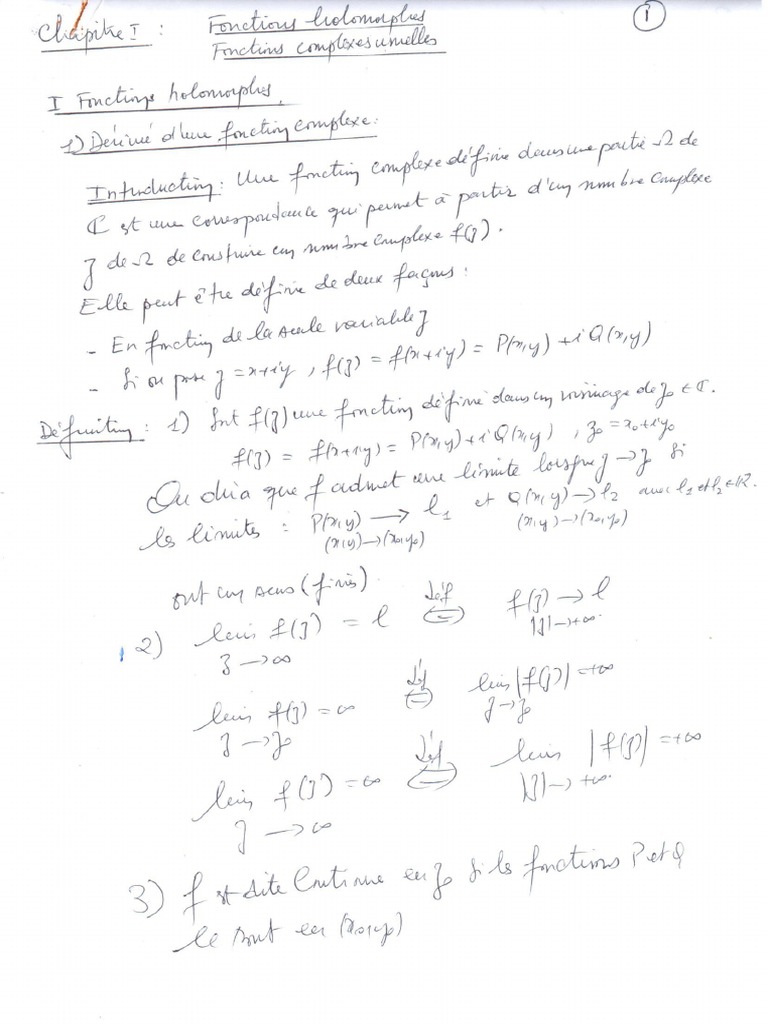 Chapitre I : Fonctions holomorphes ①
Fonctions complexes usuelles
I Fonctions holomorphes
1) Dérivée d'une fonction complexe :
Introduction : Une fonction complexe définie dans une partie Ω de
ℂ est une correspondance qui permet à partir d'un nombre complexe
z de Ω de construire un nombre complexe f(z).
Elle peut être définie de deux façons :
- En fonction de la seule variable z
- Si on pose z = x+iy, f(z) = f(x+iy) = P(x,y) + i Q(x,y)
Définition : 1) Soit f(z) une fonction définie dans un voisinage de z₀ ∈ ℂ.
f(z) = f(x+iy) = P(x,y) + i Q(x,y), z₀ = x₀+iy₀
On dira que f admet une limite lorsque z → z₀ si
les limites : P(x,y) → l₁ et Q(x,y) → l₂ avec l₁ et l₂ ∈ ℝ.
(x,y)→(x₀,y₀) (x,y)→(x₀,y₀)
ont un sens (finies).
2) lim f(z) = l déf ⟺ f(z) → l
z → ∞ |z| → +∞.
lim f(z) = ∞ déf ⟺ lim |f(z)| = +∞
z → z₀ z → z₀
lim f(z) = ∞ déf ⟺ lim |f(z)| = +∞
z → ∞ |z| → +∞.
3) f est dite continue en z₀ si les fonctions P et Q
le sont en (x₀,y₀)